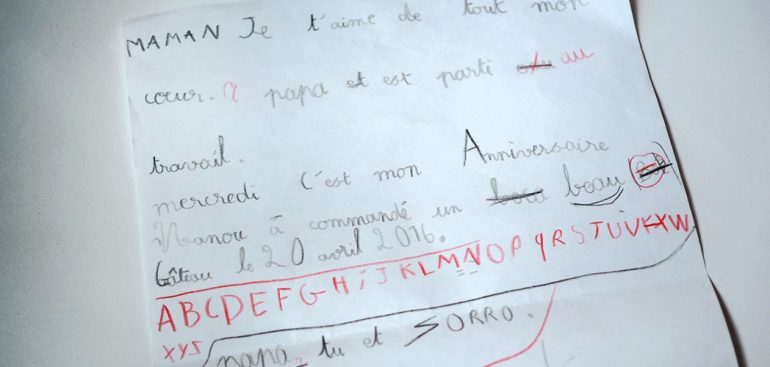 MAMAN Je t'aime de tout mon
cœur. papa et est parti au
travail.
mercredi C'est mon Anniversaire
Nanou à commandé un beau
Gâteau le 20 avril 2016.
ABCDEFGHiJKLMNOPqRSTUVXW
XYS
papa tu et SORRO.